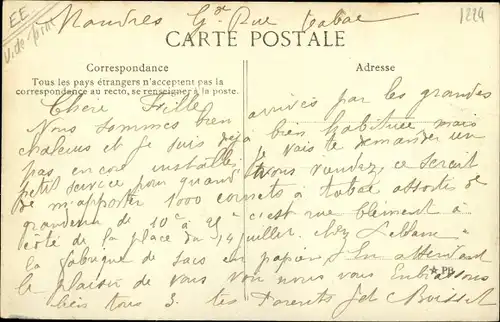 EE
Mandres Gde Rue tabac
1224
CARTE POSTALE
Correspondance
Tous les pays étrangers n'acceptent pas la
correspondance au recto, se renseigner à la poste.
Adresse
Chere Fille
Nous sommes bien arrivés par les grandes
chaleurs et je suis déjà bien habituée mais
pas encore installée je vais te demander un
petit service pour quand vous viendez, ce serait
de m'apporter 1000 cornets à tabac assortis de
grandeur de 10c à 2f c'est rue Clément à
côté de la place du 14 juillet. chez Leblanc
la fabrique de sacs en papiers En attendant
le plaisir de vous voir nous vous Embrassons
bien tous 3. tes Parents Jet Boisset
PB